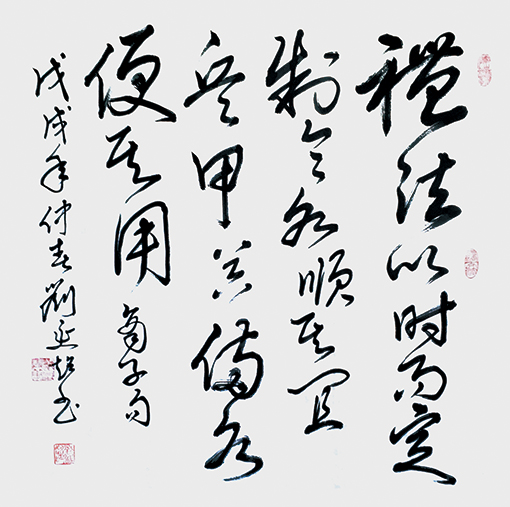 禮法以时而定
制令各順其宜
兵甲器備各
便其用 商子句
戊戌年仲春劉延超书